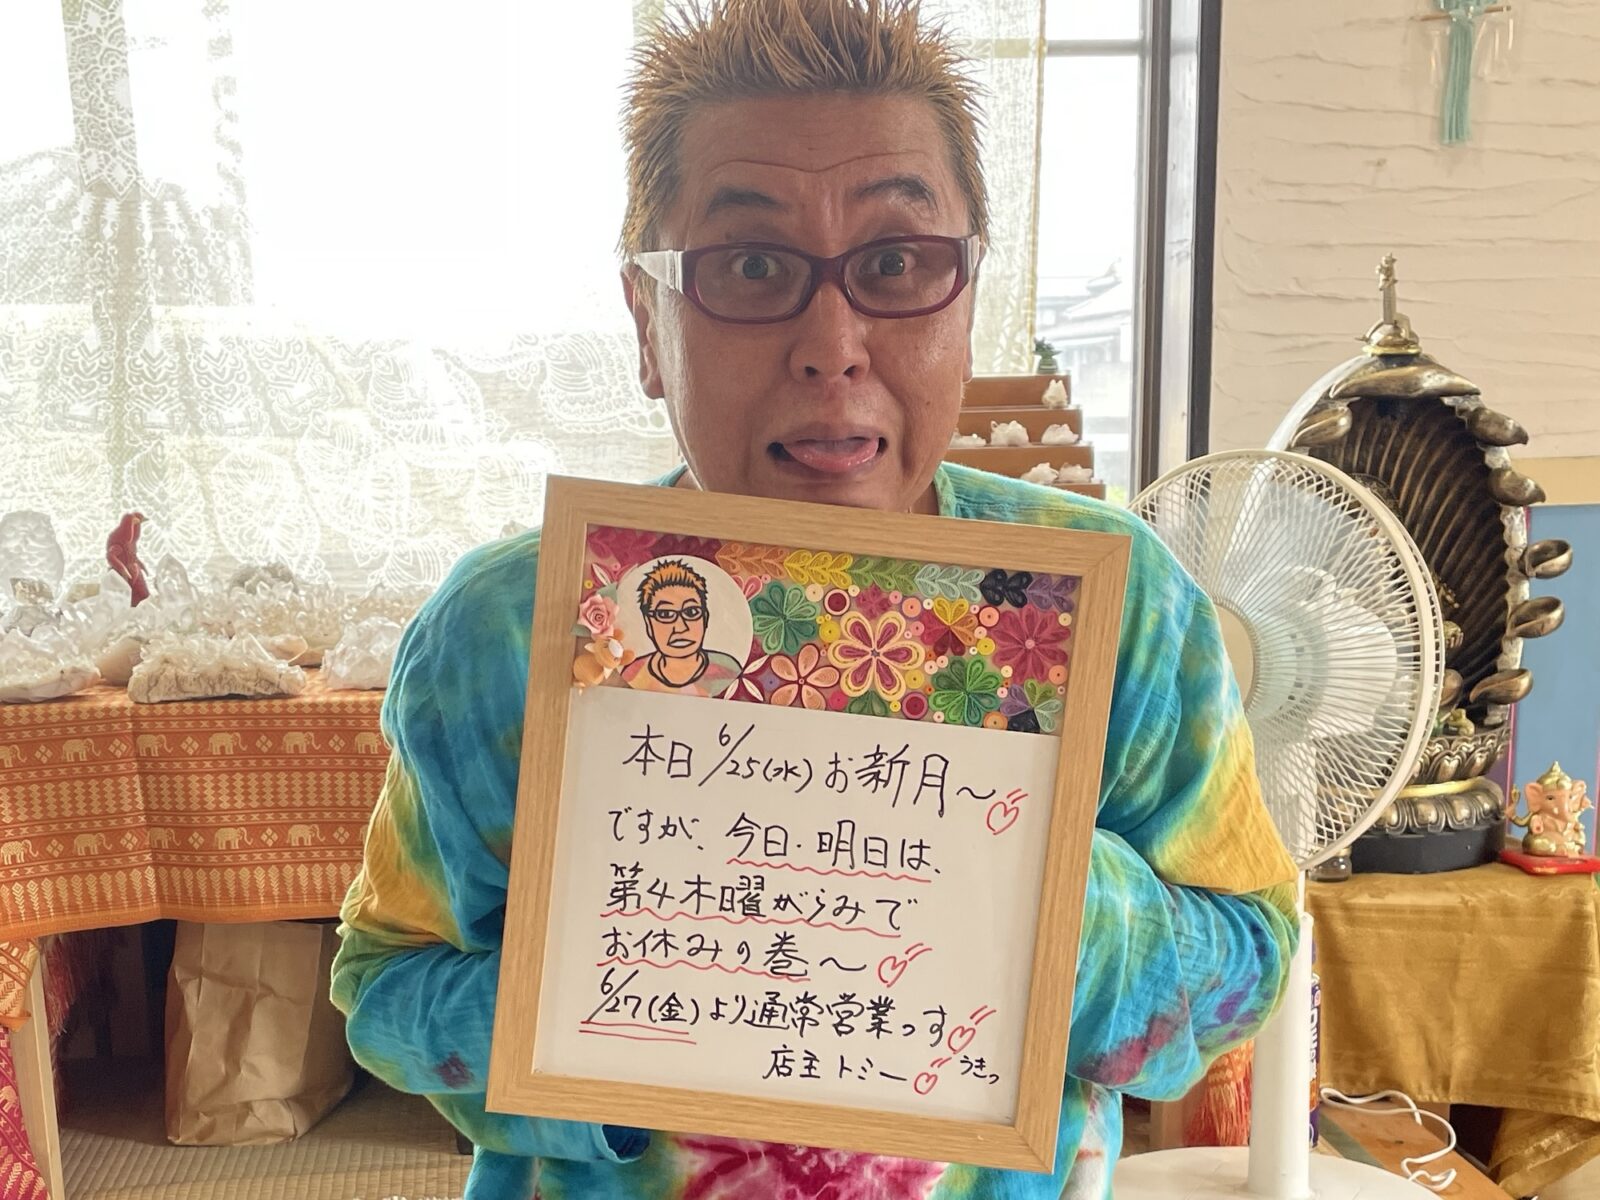 本日6/25(水)お新月〜
ですが、今日・明日は、
第4木曜がらみで
お休みの巻〜
6/27(金)より通常営業っす
店主トミー うきっ